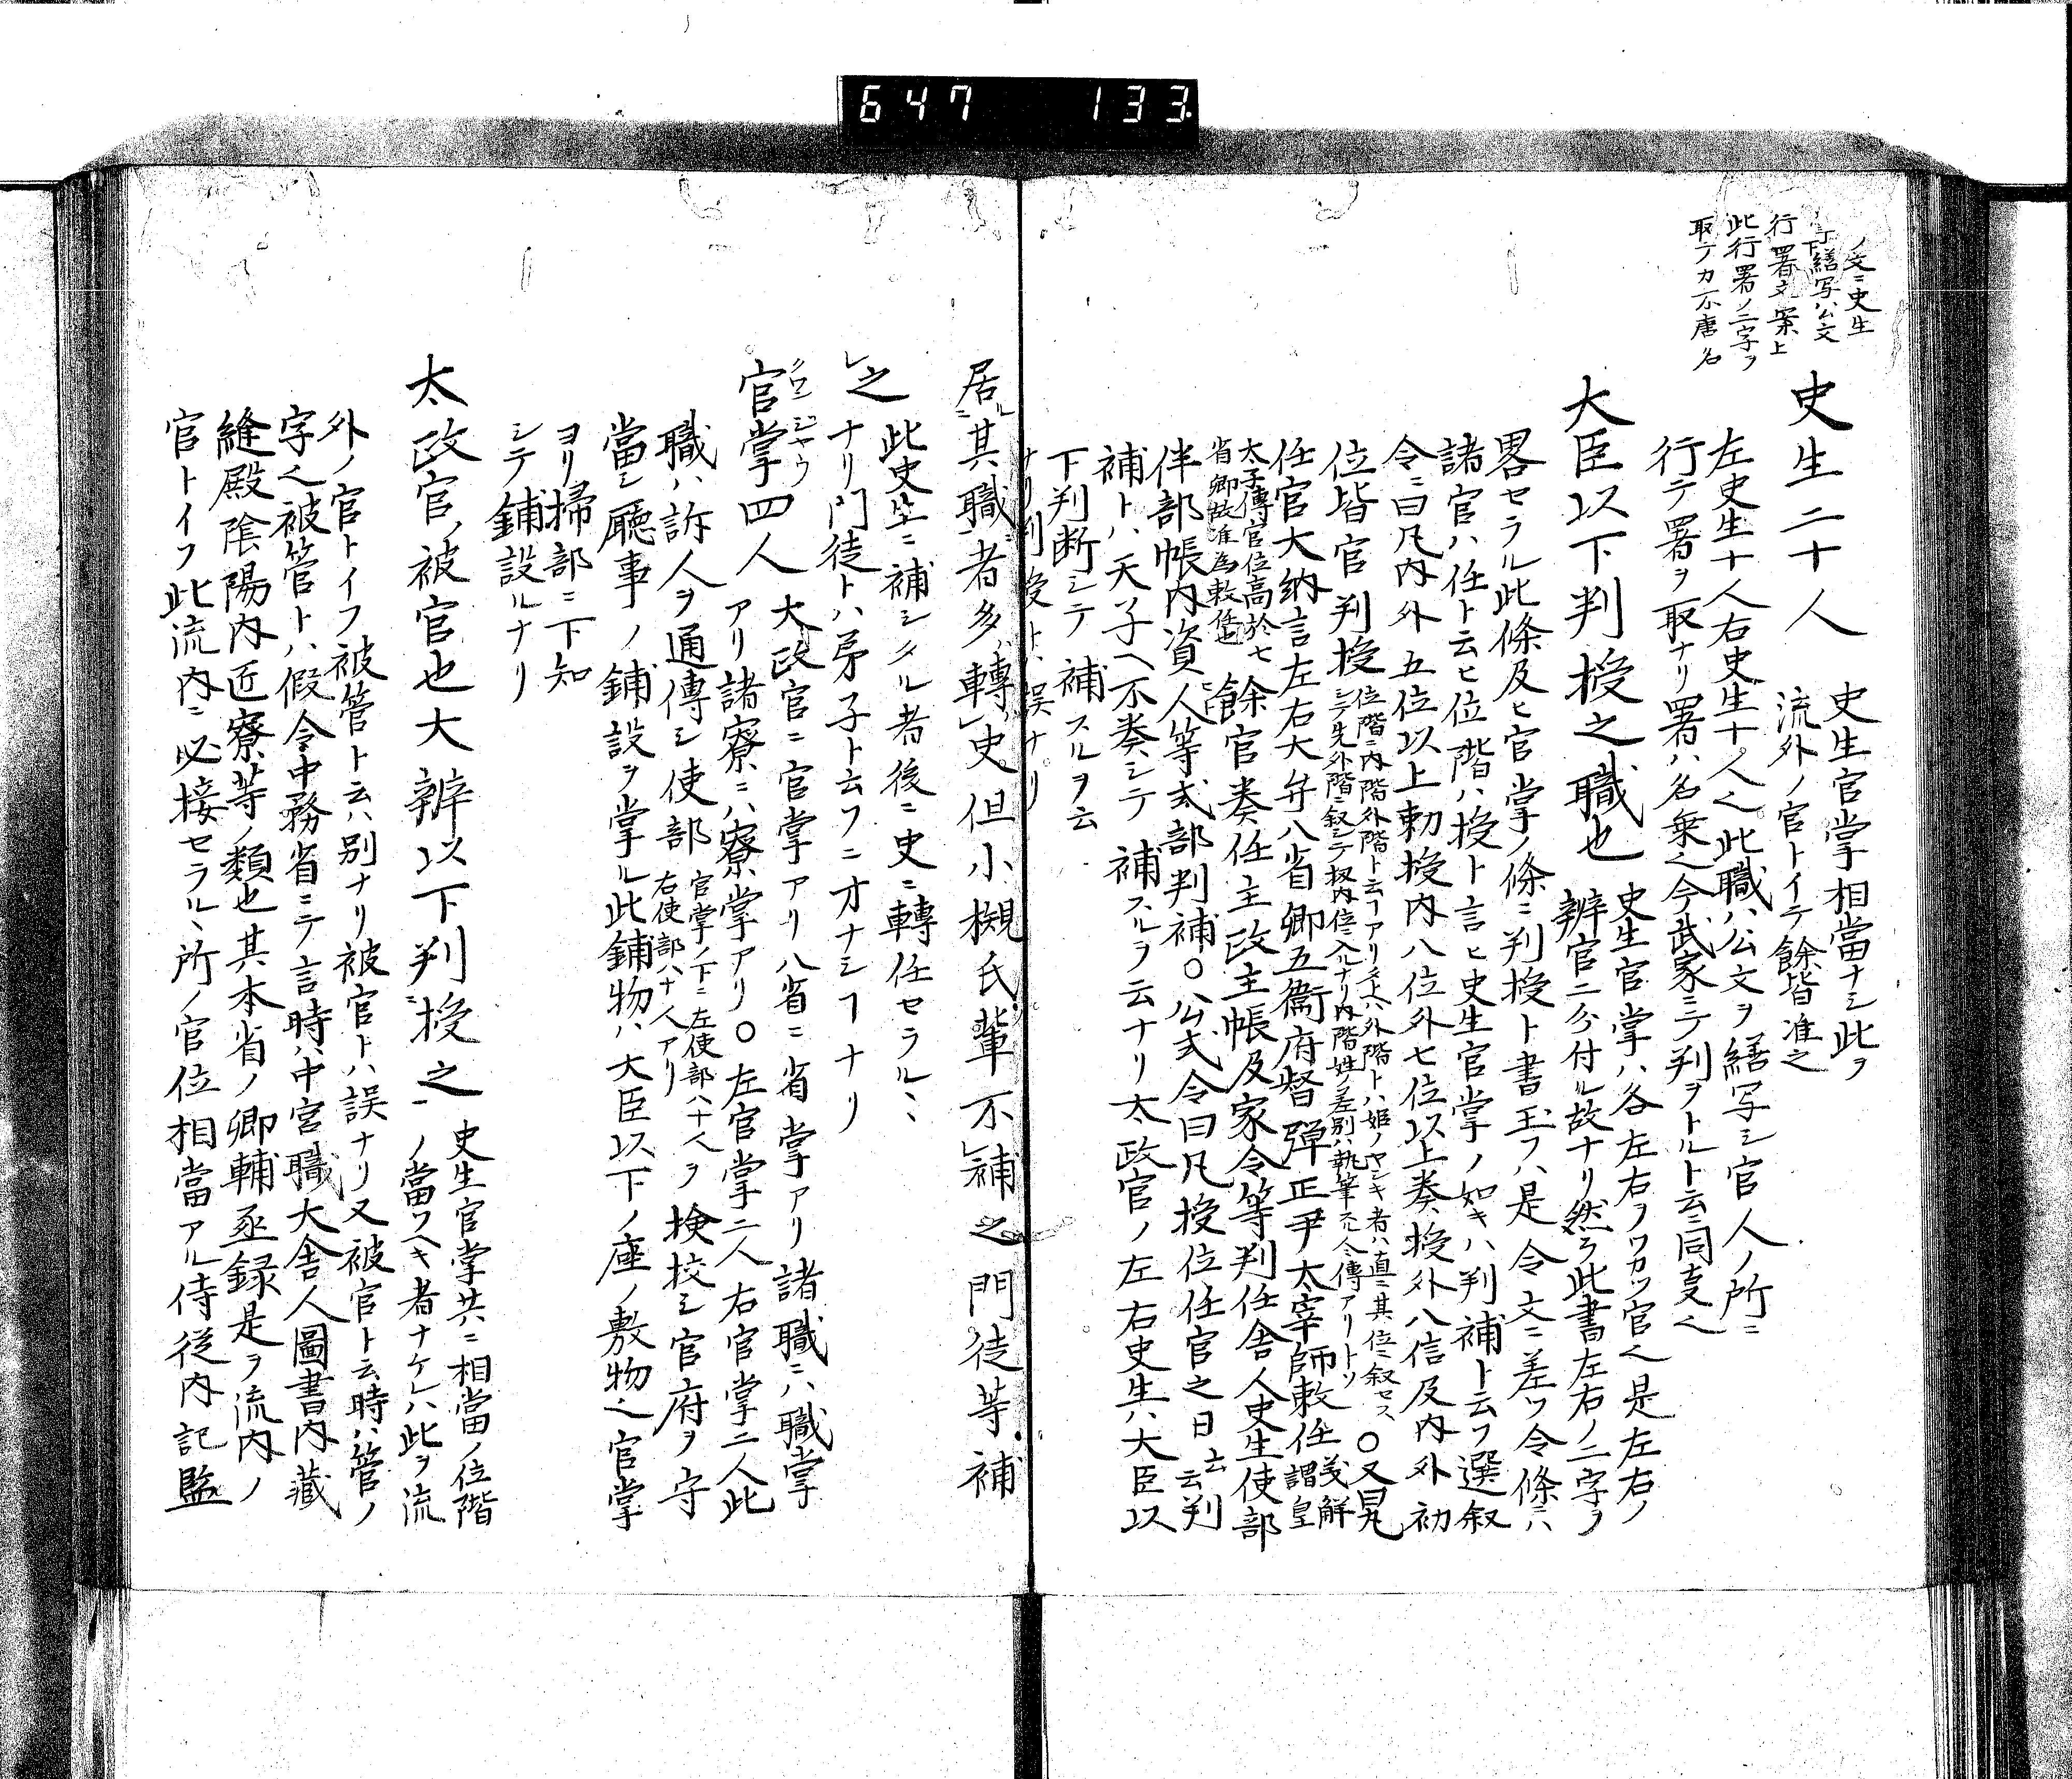 647 133
ノ文ニ史生
丁繕写ハ公文
下行署文案上
此行署ノ二字ヲ
取テカ不唐名
史生二十人
史生官掌相當ナシ此ヲ
流外ノ官トイテ餘皆准之
左史生十人右史生十人也此職ハ公文ヲ繕写シ官人ノ所ニ
行テ署ヲ取ナリ署ハ名乗也今武家ニテ判ヲトルト云ニ同支也
大臣以下判授之職也
史生官掌ハ各左右ヲワカツ官也是左右ノ
辨官ニ分付ル故ナリ然ラ此書左右ノ二字ヲ
畧セラル此條及ヒ官掌ノ條ニ判授ト書玉フハ是令文ニ差ワ令條ニハ
諸官ハ任ト云ヒ位階ハ授ト言ヒ史生官掌ノ如キハ判補ト云フ選叙
令ニ曰凡内外五位以上勅授内八位外七位以上奏授外八位及内外初
位皆官判授
位階ニ内階外階ト云アリ外階トハ姫ノヤシキ者ハ直ニ其位ニ叙セス
シテ先外階ニ叙シテ扨内位ニ入ルナリ内階姓ノ差別ハ執筆スル人令傳アリトソ
○又曰凡
任官大納言左右大弁八省卿五衞府督彈正尹太宰師敕任
義解
謂皇
太子傅官位高於七
省卿故准為敕任也
餘官奏任主政主帳及家令等判任舎人史生使部
伴部帳内資人等式部判補○公式令曰凡授位任官之日
云云
判
補トハ天子ヘ不奏シテ補スルヲ云ナリ太政官ノ左右史生ハ大臣以
下判断シテ補スルヲ云
ナリ判授トハ誤ナリ
居其職者多轉史但小槻氏輩不補之門徒等補
之
此史生ニ補シタル者後ニ史ニ轉任セラルヽヽ
ナリ門徒トハ弟子ト云フニ才ナシフナリ
クワンシヤウ
官掌四人
大政官ニ官掌アリ八省ニ省掌アリ諸職ニハ職掌
アリ諸寮ニハ寮掌アリ○左官掌二人右官掌二人此
職ハ訴人ヲ通傳シ使部
官掌ノ下ニ左使部八十人
右使部八十人アリ
ヲ検校シ官府ヲ守
當シ廳事ノ鋪設ヲ掌ル此鋪物ハ大臣以下ノ座ノ敷物也官掌
ヨリ掃部ニ下知
シテ鋪設ルナリ
太政官ノ被官也大辨以下判授之
史生官掌共ニ相當ノ位階
ノ當フヘキ者ナケレハ此ヲ流
外ノ官トイフ被管ト云ハ別ナリ被官トハ誤ナリ又被官ト云時ハ管ノ
字也被管トハ假令中務省ニテ言時ハ中宮職大舎人圖書内藏
縫殿陰陽内匠寮等ノ類也其本省ノ卿輔丞録是ヲ流内ノ
官トイフ此流内ニ必接セラルヽ所ノ官位相當アル侍從内記監